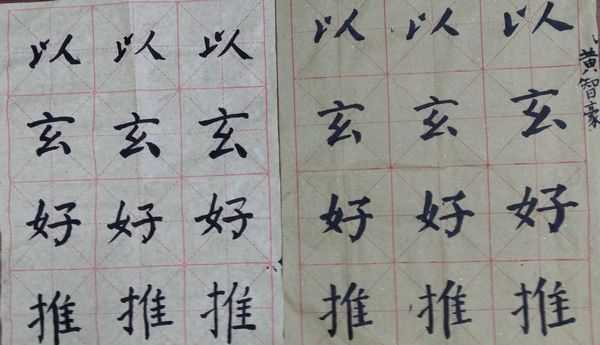 以以以
玄玄玄
好好好
推推推
以以以
玄玄玄
好好好
推推推
黄智豪